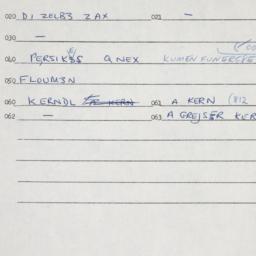 020 DI ZELB3 ZAX 021 —
030 —
040 PERSIK3S QNEX KUMEN FUN
050 FLOUM3N
060 KERNDL KERN 061 A KERN (812
062 — 063 A GREJSER KER